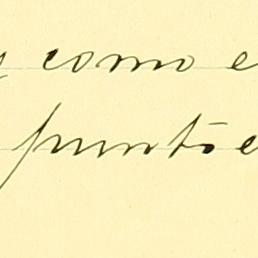 y como e
puntoe